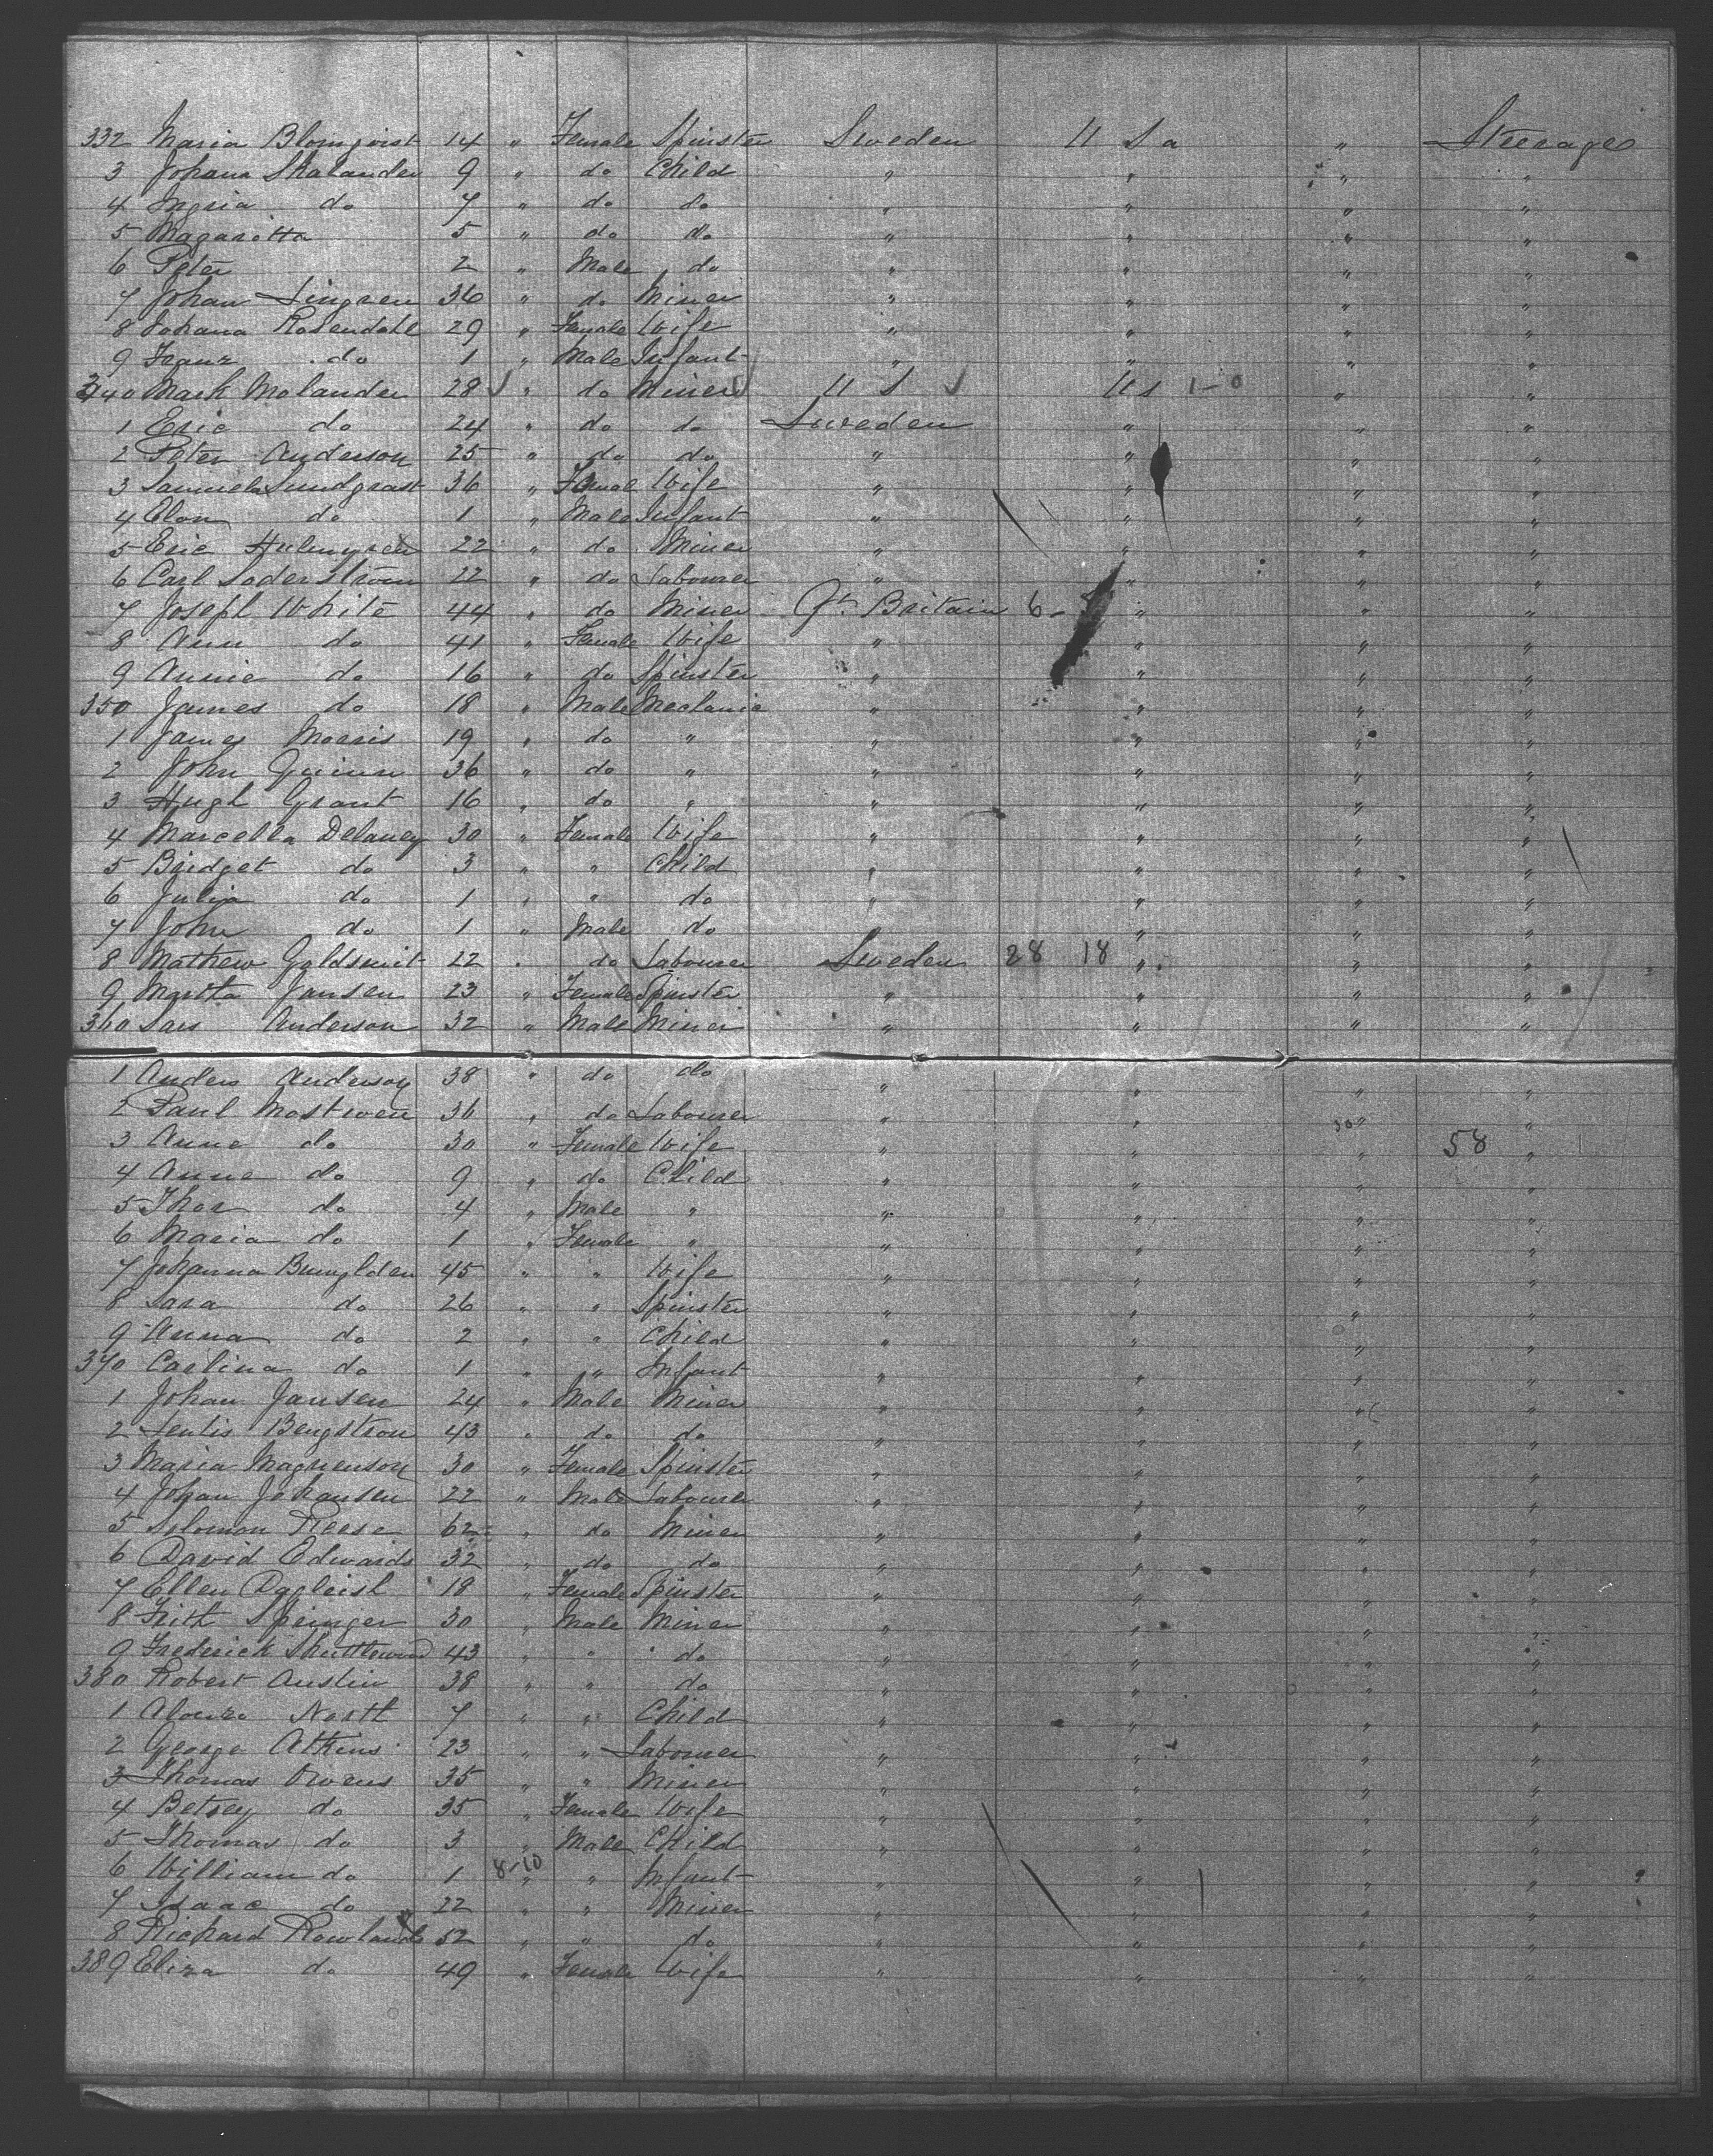 332 Maria Blomqvist 14 " Female Spinster Sweden U S a " Steerage
3 Johana Skalander 9 " do Child " " " "
4 Ingria do 7 " do do " " " "
5 Magaritta 5 " do do " " " "
6 Peter 2 " Male do " " " "
7 Johan Lingren 36 " do Miner " " " "
8 Johana Rosendahl 29 " Female Wife " " " "
9 Franz do 1 " Male Infant " " " "
340 Mark Molander 28 " do Miner U S U s 1-0 " "
1 Eric do 24 " do do Sweden " " "
2 Peter Anderson 25 " do do " " " "
3 36 " Femal Wife " " " "
4 do 1 " Male Infant " " " "
5 Eric 22 " do Miner " " " "
6 Carl Soderstrom 22 " do Labourer " " " "
7 Joseph White 44 " do Miner Gt Britain 6- " " "
8 Ann do 41 " Female Wife " " " "
9 Annie do 16 " do Spinster " " " "
350 James do 18 " Male Mechanic " " " "
1 James Morris 19 " do " " " " "
2 John Quinn 36 " do " " " " "
3 Hugh Grant 16 " do " " " " "
4 Marcella Delaney 30 " Female Wife " " " "
5 Bridget do 3 " " Child " " " "
6 Julia do 1 " " do " " " "
7 John do 1 " Male do " " "
8 Mathew Goldsmit 22 " do Labourer Sweden 28 18 " " "
9 Martta Jansen 23 " Female Spinster " " " "
360 Lars Anderson 32 " Male Miner " " " "
1 Anders Anderson 38 " do do " " " "
2 Paul 36 " do Labourer " " 30 " "
3 Anne do 30 " Female Wife " " " 58 "
4 Anne do 9 " do Child " " " "
5 Thor do 4 " Male " " " " "
6 Maria do 1 " Female " " " " "
7 Johanna 45 " " Wife " " " "
8 Sara do 26 " " Spinster " " " "
9 Anna do 2 " " Child " " " "
370 Carlina do 1 " " Infant " " " "
1 Johan Jansen 24 " Male Miner " " " "
2 Bengstrom 43 " do do " " " "
3 Maria Magnenson 30 " Female Spinster " " " "
4 Johan Johansen 22 " Male Labourer " " " "
5 Solomon Reese 62 " do Miner " " " "
6 David Edwards 32 " do do " " " "
7 Ellen Dagleish 18 " Female Spinster " " " "
8 Frith Springer 30 " Male Miner " " " "
9 Frederick 43 " " do " " " "
380 Robert Austin 38 " " do " " " "
1 Alonzo North 7 " " Child " " " "
2 George Atkins 23 " " Labourer " " " "
3 Thomas Owens 35 " " Miner " " " "
4 Betsey do 35 " Female Wife " " " "
5 Thomas do 3 " Male Child " " " "
6 William do 1 8-10 " " Infant " " " "
7 Isaac do 22 " " Miner " " " "
8 Richard Rowlands 52 " " do " " " "
389 Eliza do 49 " Female Wife " " " "